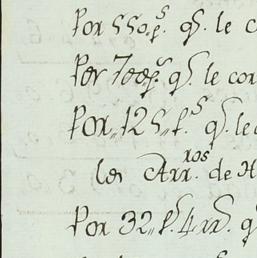 Por 550p.s q.s le c
Por 700p.s q.s le cor
Por,,125,,p.s q.s le c
los Arr.ros de H
Por 32,,p.s 4rr.s q